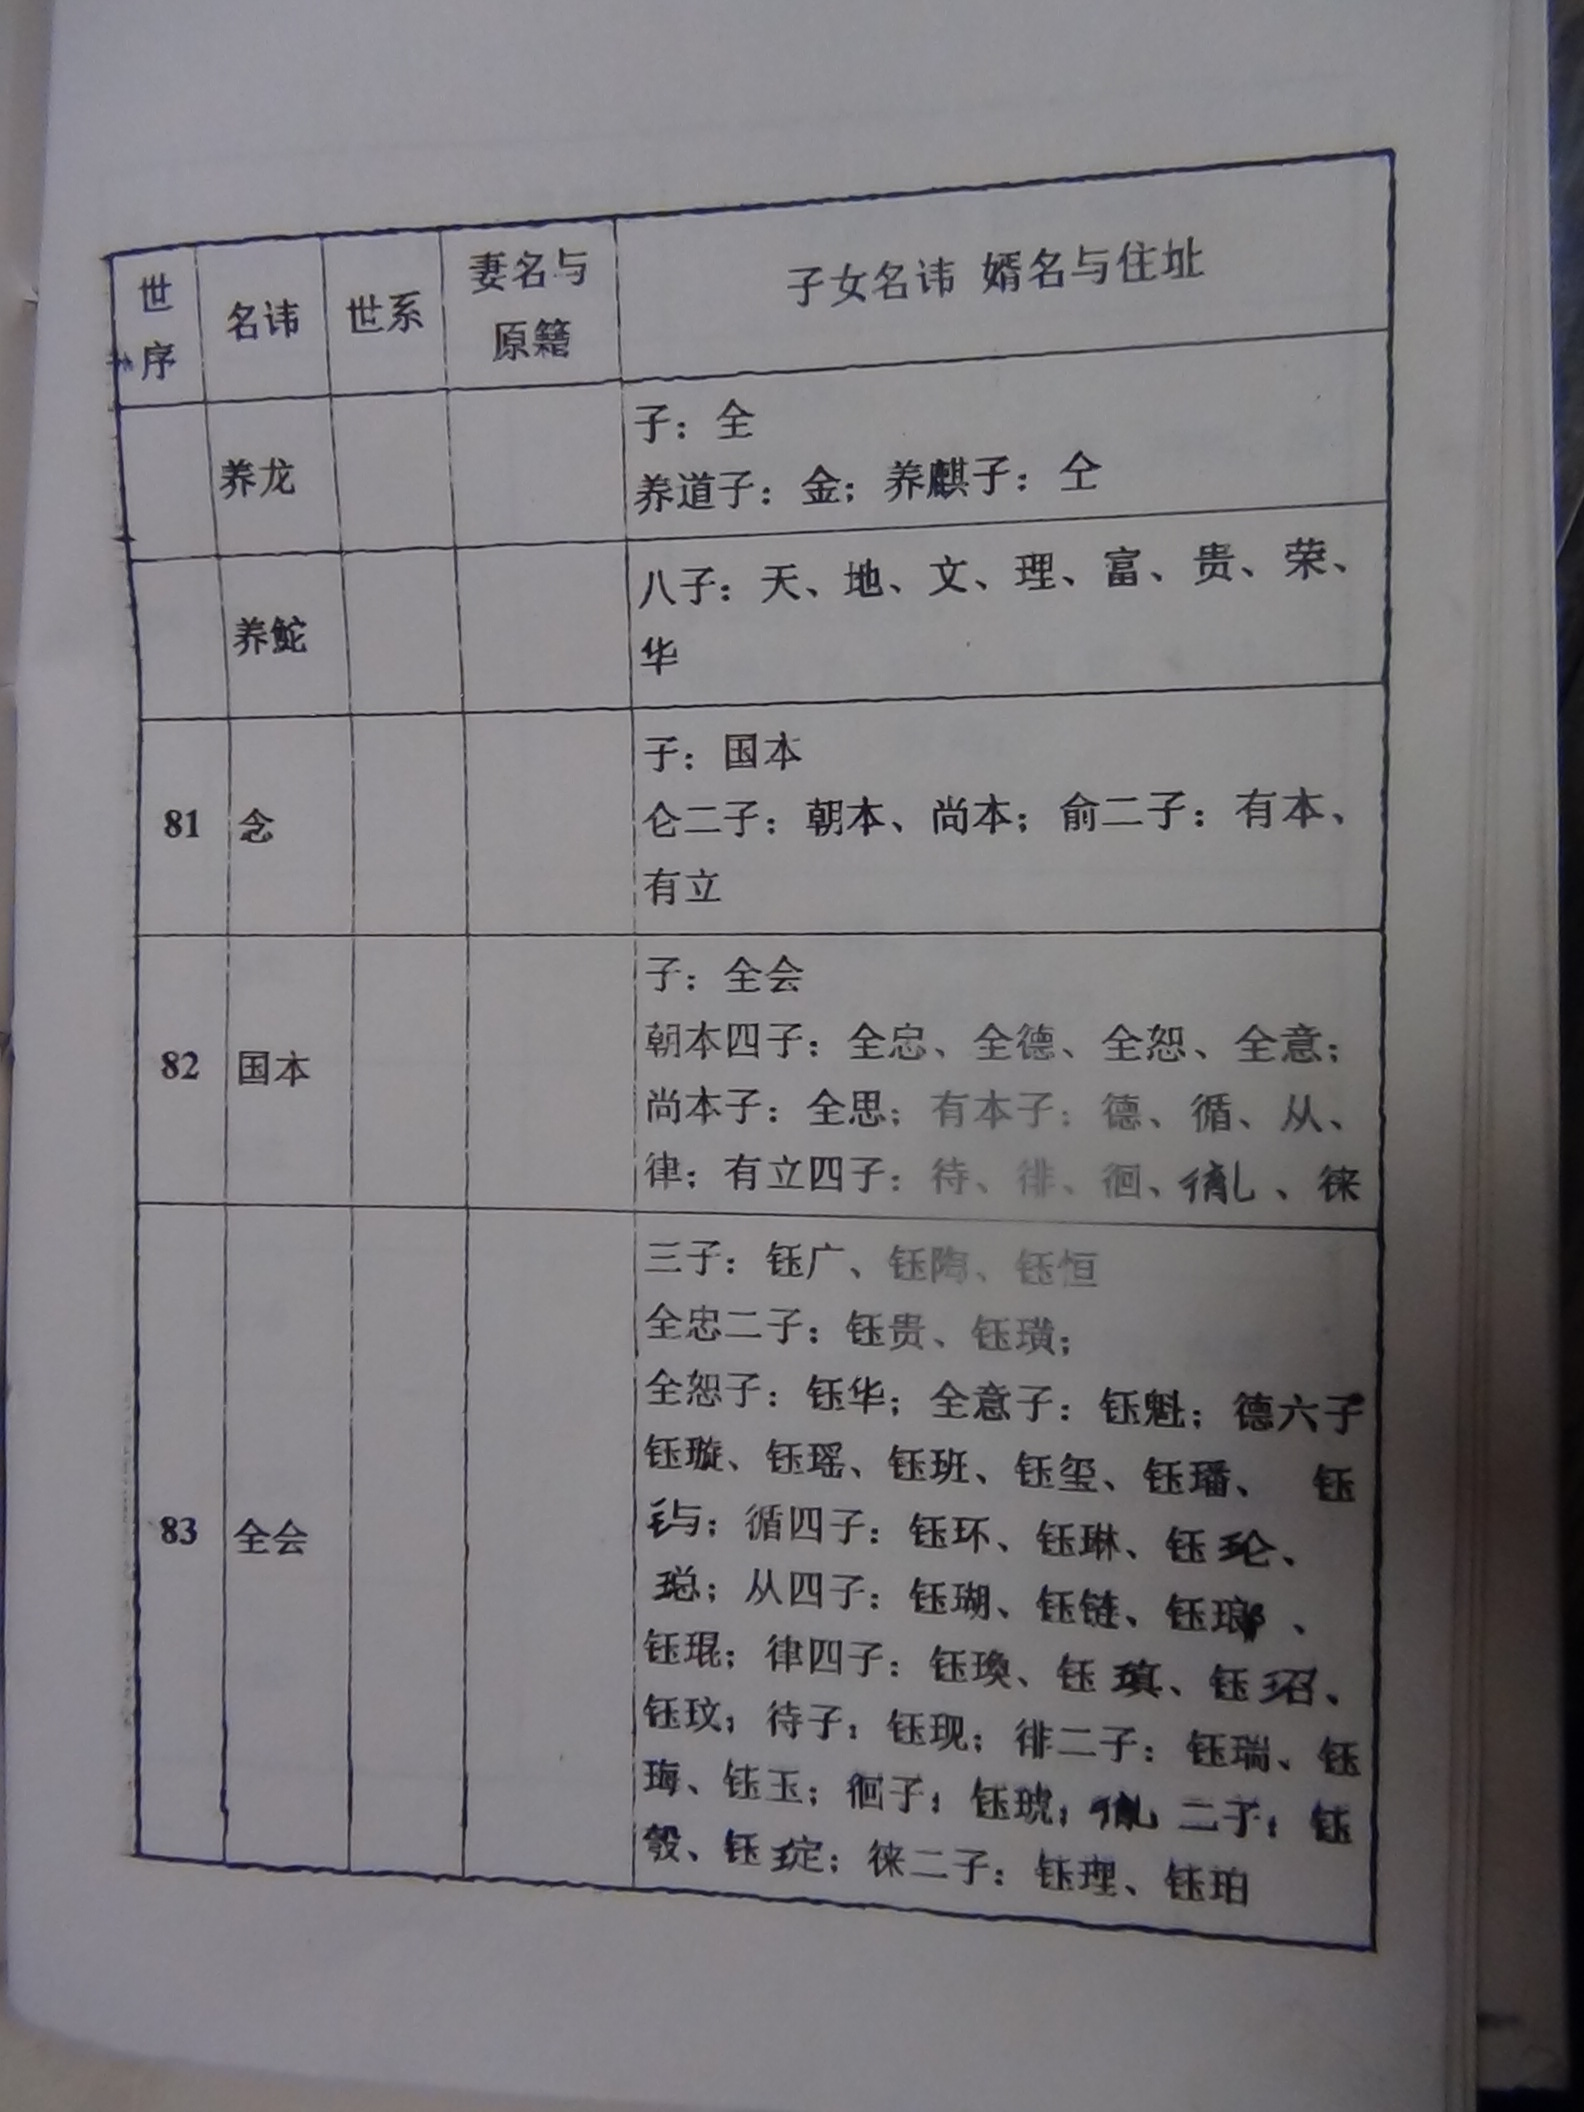 世序 名讳 世系 妻名与原籍 子女名讳 婿名与住址
养龙
子：全
养道子：金；养麒子：仝
养鮀
八子：天、地、文、理、富、贵、荣、
华
81 念
子：国本
仑二子：朝本、尚本；俞二子：有本、
有立
82 国本
子：全会
朝本四子：全忠、全德、全恕、全意；
尚本子：全思；有本子：德、循、从、
律；有立四子：待、徘、徊、、徕
83 全会
三子：钰广、钰陶、钰恒
全忠二子：钰贵、钰璜；
全恕子：钰华；全意子：钰魁；德六子
钰璇、钰瑶、钰班、钰玺、钰璠、 钰
玙；循四子：钰环、钰琳、钰玱、
璁；从四子：钰瑚、钰链、钰瑯、
钰琨；律四子：钰瑍、钰瑱、钰玿、
钰玟；待子：钰现；徘二子：钰瑞、钰
珻、钰玉；徊子：钰琥； 二子：钰
瑴、钰琔；徕二子：钰理、钰珀